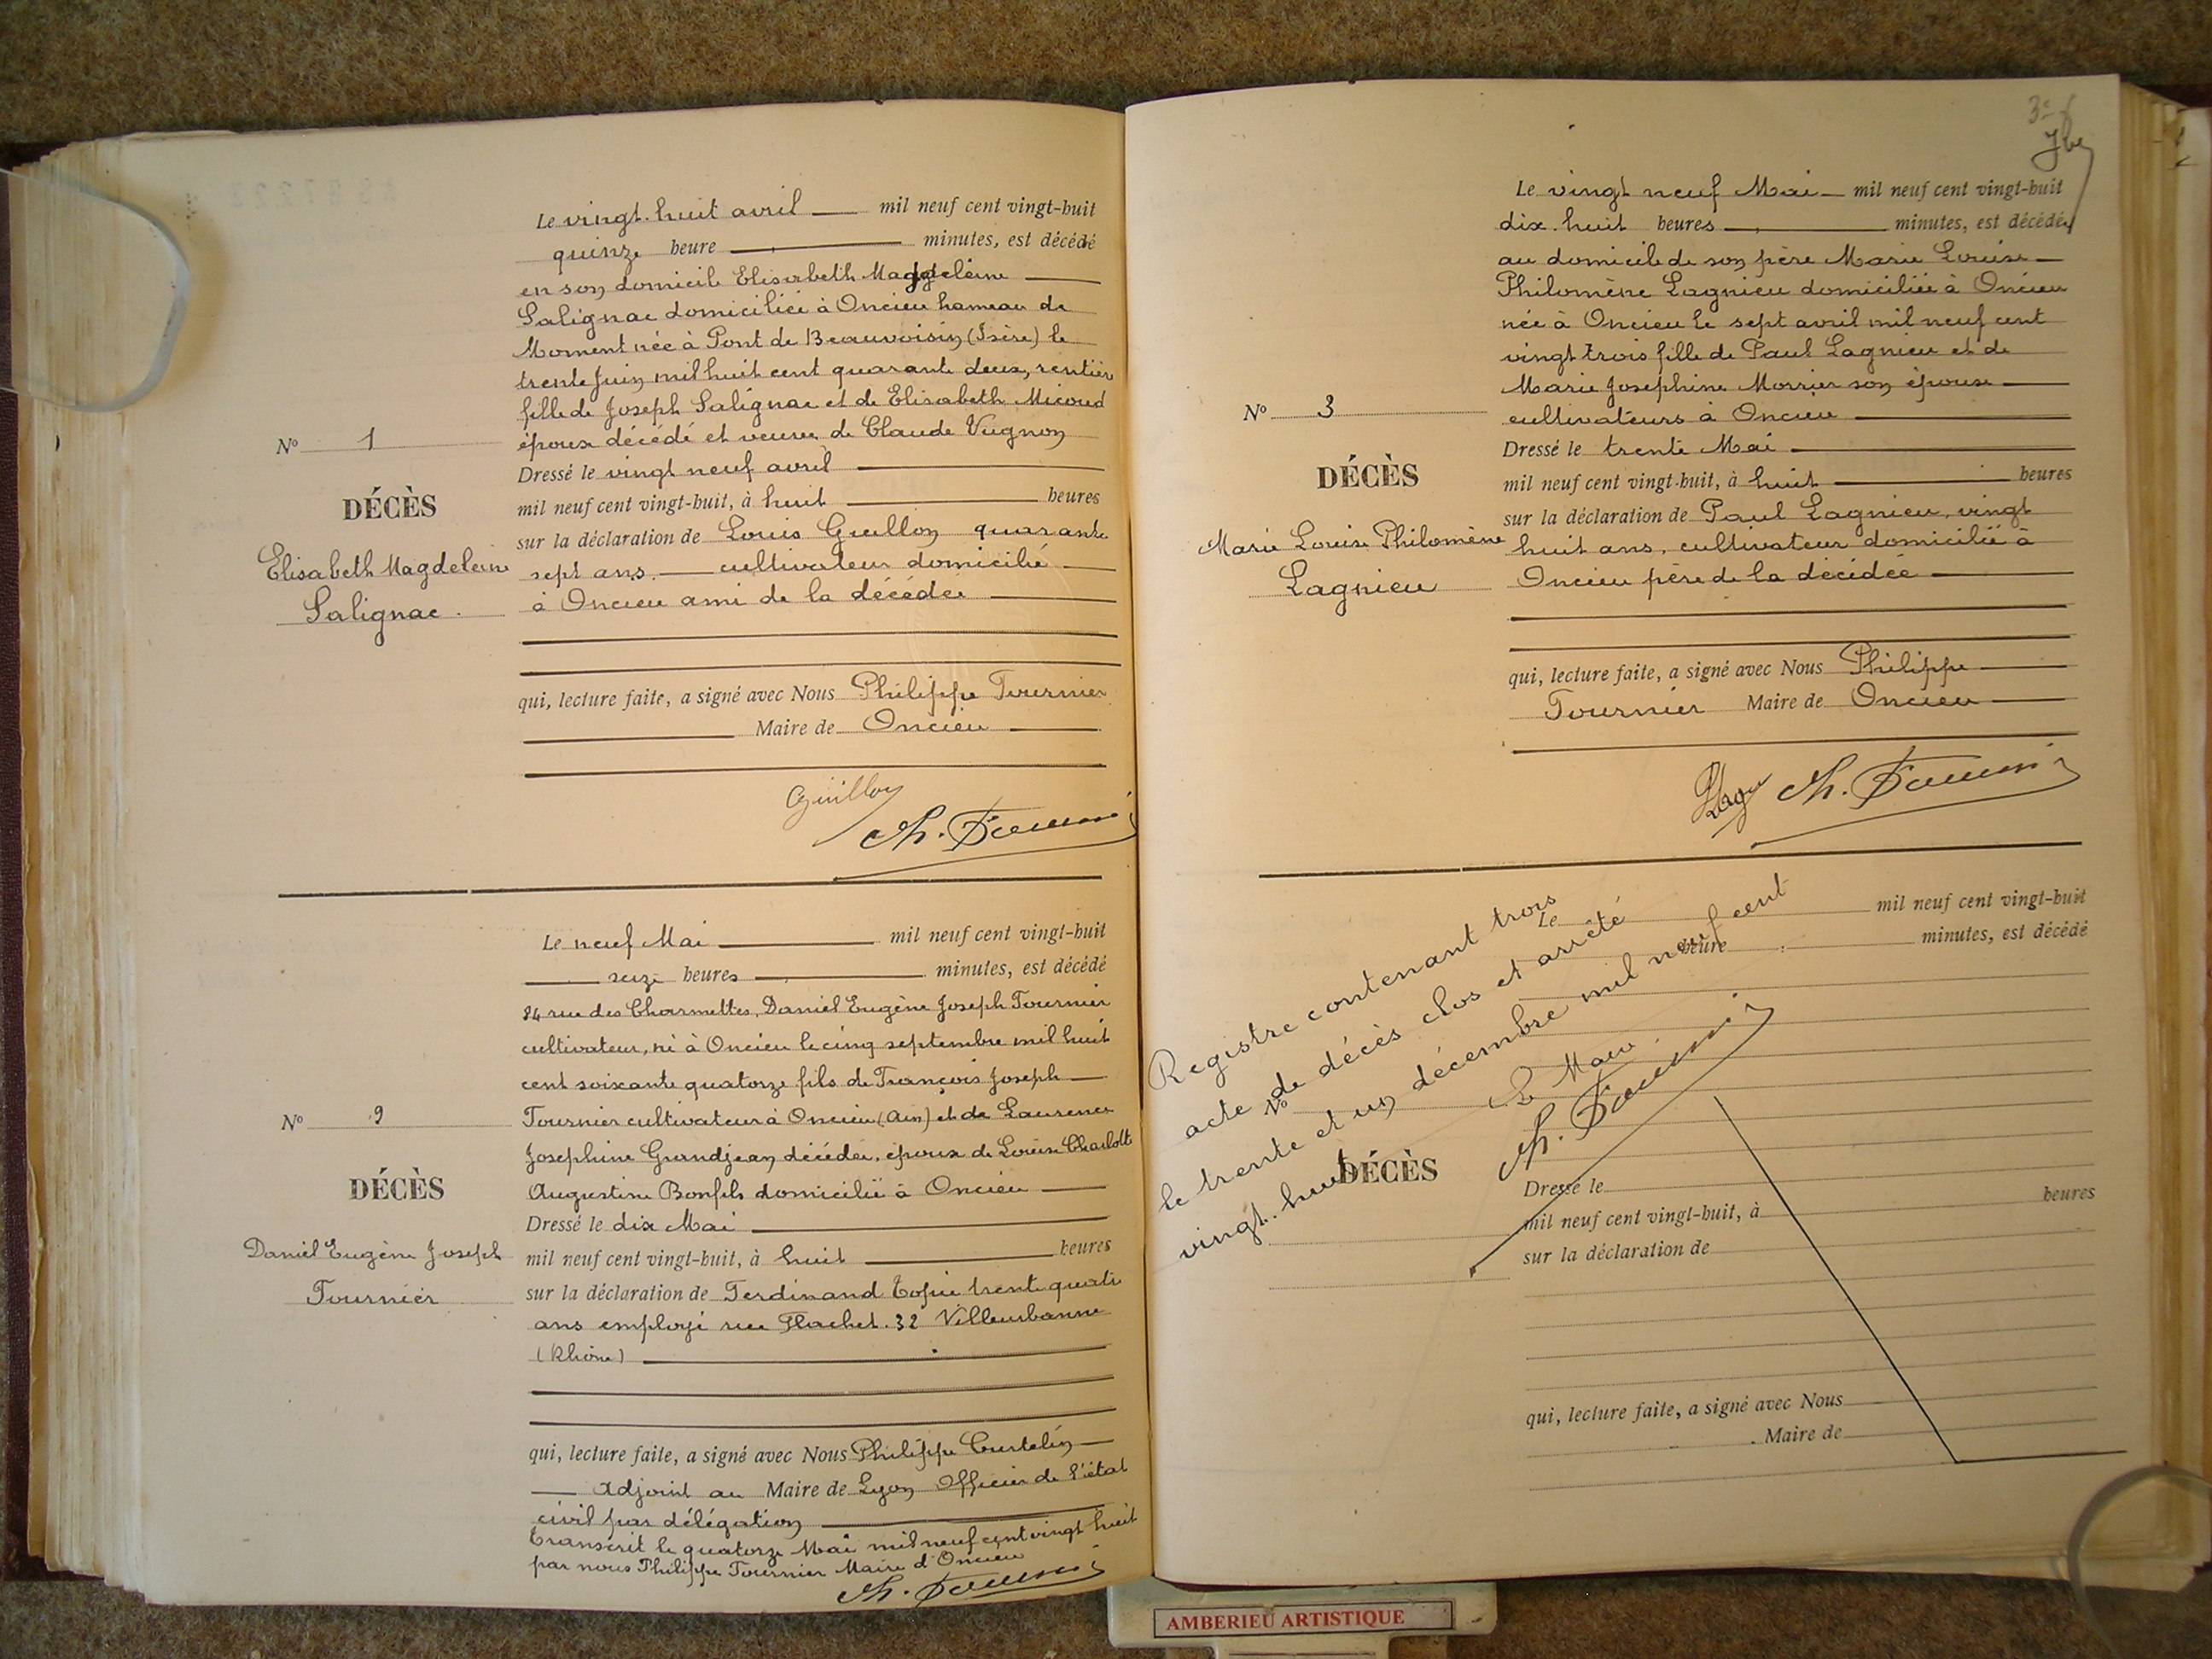 Le vingt-huit avril mil neuf cent vingt-huit
quinze heure minutes, est décédé
en son domicile Elisabeth Magdeleine
Salignac domiciliée à Oncieu hameau de
Moment née à Pont de Beauvoisin (Isère) le
trente Juin mil huit cent quarante deux, rentière
fille de Joseph Salignac et de Elisabeth Micoud
époux décédé et veuve de Claude Vugnon
Dressé le vingt neuf avril
mil neuf cent vingt-huit, à huit heures
sur la déclaration de Louis Guillon quarante
sept ans. cultivateur domicilié
à Oncieu ami de la décédée
qui, lecture faite, a signé avec Nous Philippe Tournier
Maire de Oncieu
Guillon
Ph. Tournier
No 1
DÉCÈS
Elisabeth Magdeleine
Salignac.
Le neuf Mai mil neuf cent vingt-huit
seize heures minutes, est décédé
84 rue des Charmettes, Daniel Eugène Joseph Tournier
cultivateur, né à Oncieu le cinq septembre mil huit
cent soixante quatorze fils de François Joseph
Tournier cultivateur à Oncieu (Ain) et de Laurence
Josephine Grandjean décédée, époux de Louise Charlotte
Augustine Bonfils domicilié à Oncieu
Dressé le dix Mai
mil neuf cent vingt-huit, à huit heures
sur la déclaration de Ferdinand trente quatre
ans employé rue Flachet. 32 Villeurbanne
(Rhône)
qui, lecture faite, a signé avec Nous Philippe Curtelin
adjoint au Maire de Lyon Officier de l'état
civil par délégation
Transcrit le quatorze Mai mil neuf cent vingt huit
par nous Philippe Tournier Maire d'Oncieu
Ph. Tournier
No 2
DÉCÈS
Daniel Eugène Joseph
Tournier
Le vingt neuf Mai mil neuf cent vingt-huit
dix-huit heures minutes, est décédée
au domicile de son père Marie Louise
Philomène Lagnieu domiciliée à Oncieu
née à Oncieu le sept avril mil neuf cent
vingt trois fille de Paul Lagnieu et de
Marie Josephine Morrier son épouse
cultivateurs à Oncieu
Dressé le trente Mai
mil neuf cent vingt-huit, à huit heures
sur la déclaration de Paul Lagnieu, vingt
huit ans, cultivateur domicilié à
Oncieu père de la décédée
qui, lecture faite, a signé avec Nous Philippe
Tournier Maire de Oncieu
Ph. Tournier
No 3
DÉCÈS
Marie Louise Philomène
Lagnieu
Registre contenant trois
acte de décès clos et arrêté
le trente et un décembre mil neuf cent
vingt-huit
Le Maire
Ph. Tournier
Le mil neuf cent vingt-huit
heure minutes, est décédé
No
DÉCÈS
Dressé le
mil neuf cent vingt-huit, à heures
sur la déclaration de
qui, lecture faite, a signé avec Nous
Maire de
AMBERIEU ARTISTIQUE